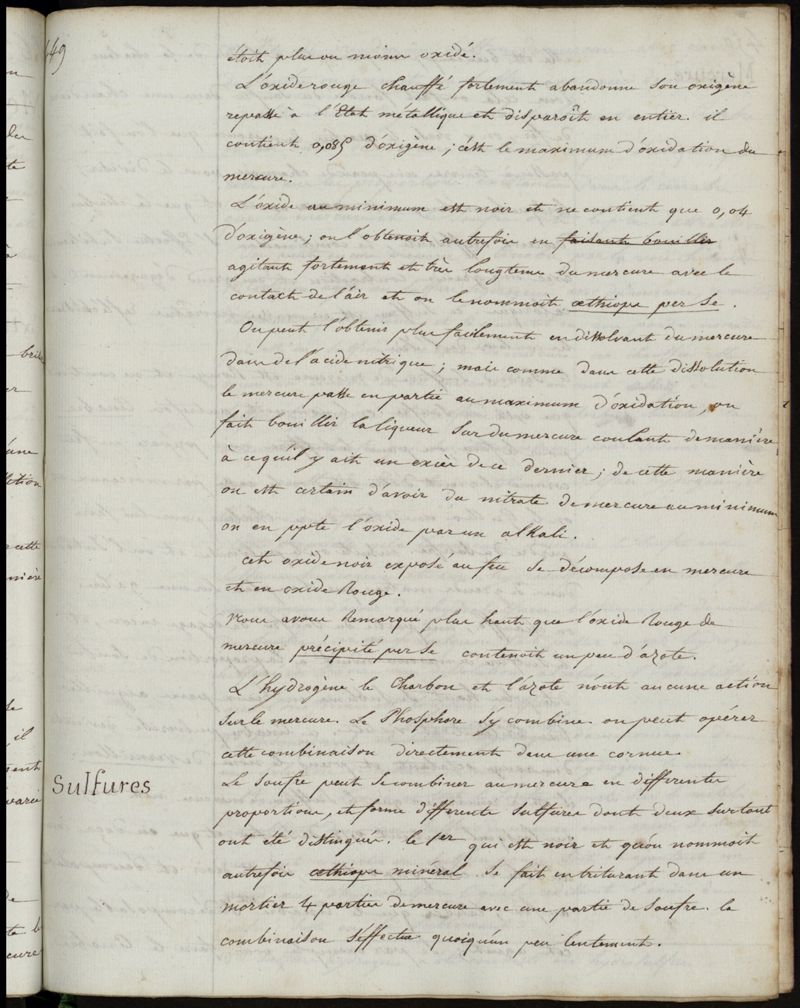 149
étoit plus ou moins oxidé.
L'oxide rouge chauffé fortement abandonne son oxigène
repasse à l'Etat métallique et disparoît en entier. il
contient 0,085 d'oxigène ; c'est le maximum d'oxidation du
mercure.
L'oxide au minimum est noir et ne contient que 0,04
d'oxigène ; on l'obtenoit autrefois en faisant bouillir
agitant fortement et très longtems du mercure avec le
contact de l'air et on le nommoit æthiops per se.
On peut l'obtenir plus facilement en dissolvant du mercure
dans de l'acide nitrique ; mais comme dans cette dissolution
le mercure passe en partie au maximum d'oxidation, on
fait bouillir la liqueur sur du mercure coulant de manière
à ce qu'il y ait un excès de ce dernier ; de cette manière
on est certain d'avoir du nitrate de mercure au minimum
on en ppte l'oxide par un alkali.
cet oxide noir exposé au feu se décompose en mercure
et en oxide Rouge.
Nous avons Remarqué plus haut que l'oxide Rouge de
mercure précipité per se contenoit un peu d'azote.
L'hydrogène le Charbon et l'azote n'ont aucune action
sur le mercure. Le Phosphore s'y combine. on peut opérer
cette combinaison directement dans une cornue.
Sulfures
Le soufre peut se combiner au mercure en différentes
proportions, et forme différents sulfures dont deux surtout
ont été distingués. le 1er qui est noir et qu'on nommoit
autrefois æthiops minéral se fait en triturant dans un
mortier 4 parties de mercure avec une partie de soufre. la
combinaison s'effectue quoiqu'un peu lentement.